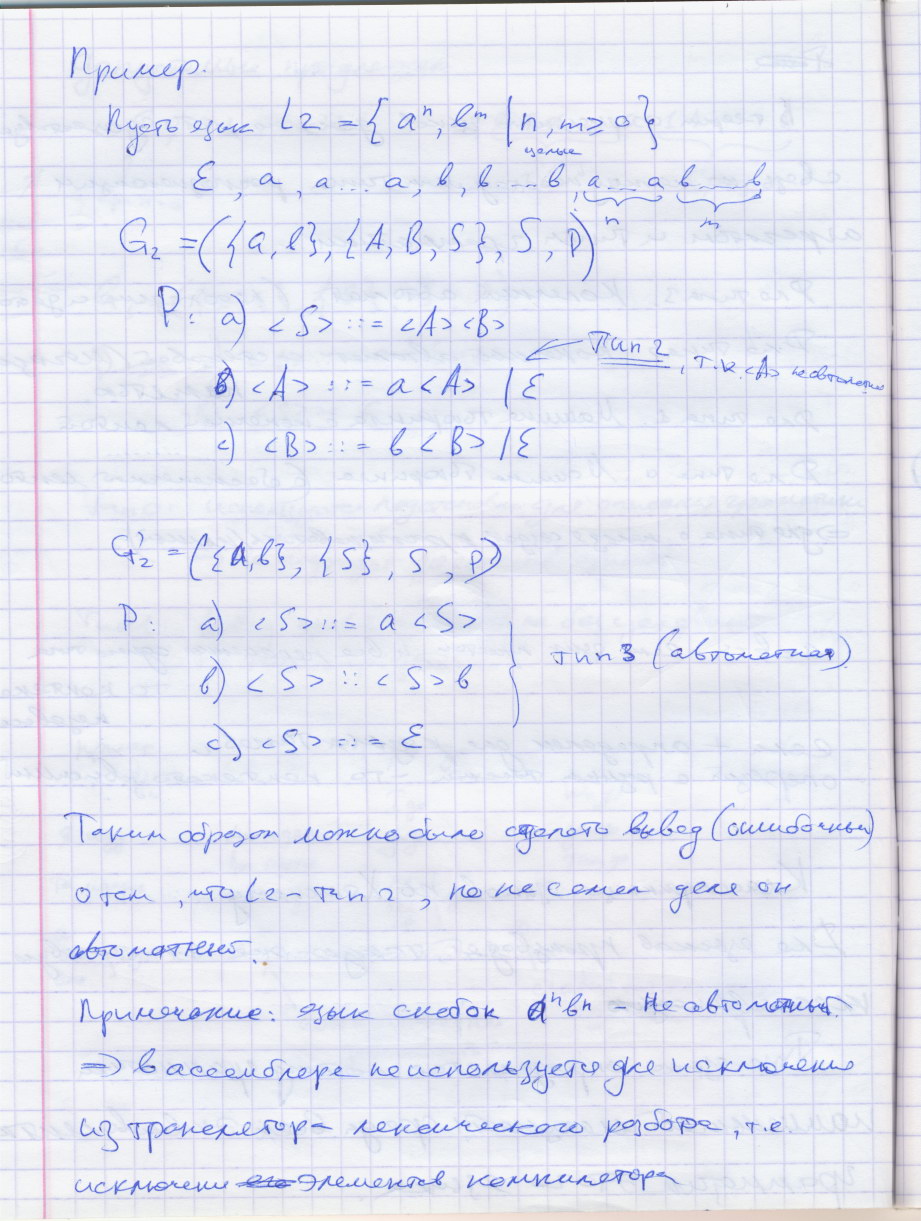 Пример.
Пусть язык L2 = { aⁿ, bᵐ | n, m ≥ 0 }
целые
ε, a, a...a, b, b....b, a...a b.....b
n m
G₂ = ({a, b}, {A, B, S}, S, P)
P: a) <S> ::= <A><B>
Тип 2, т.к. <A> неавтоматн
b) <A> ::= a<A> | ε
c) <B> ::= b<B> | ε
G₂' = ({a, b}, {S}, S, P)
P: a) <S> ::= a <S>
b) <S> :: <S> b
тип 3 (автоматная)
c) <S> ::= ε
Таким образом можно было сделать вывод (ошибочный)
о том, что L2 - тип 2, но на самом деле он
автоматный.
Примечание: язык скобок aⁿbⁿ - неавтоматный.
=> в ассемблере не используется для исключения
из транслятора лексического разбора, т.е.
исключени элементов компилятора